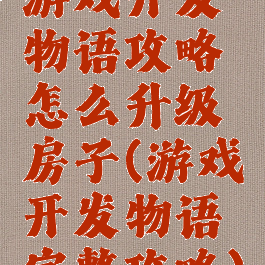 游戏开发
物语攻略
怎么升级
房子(游戏
开发物语
完整攻略)